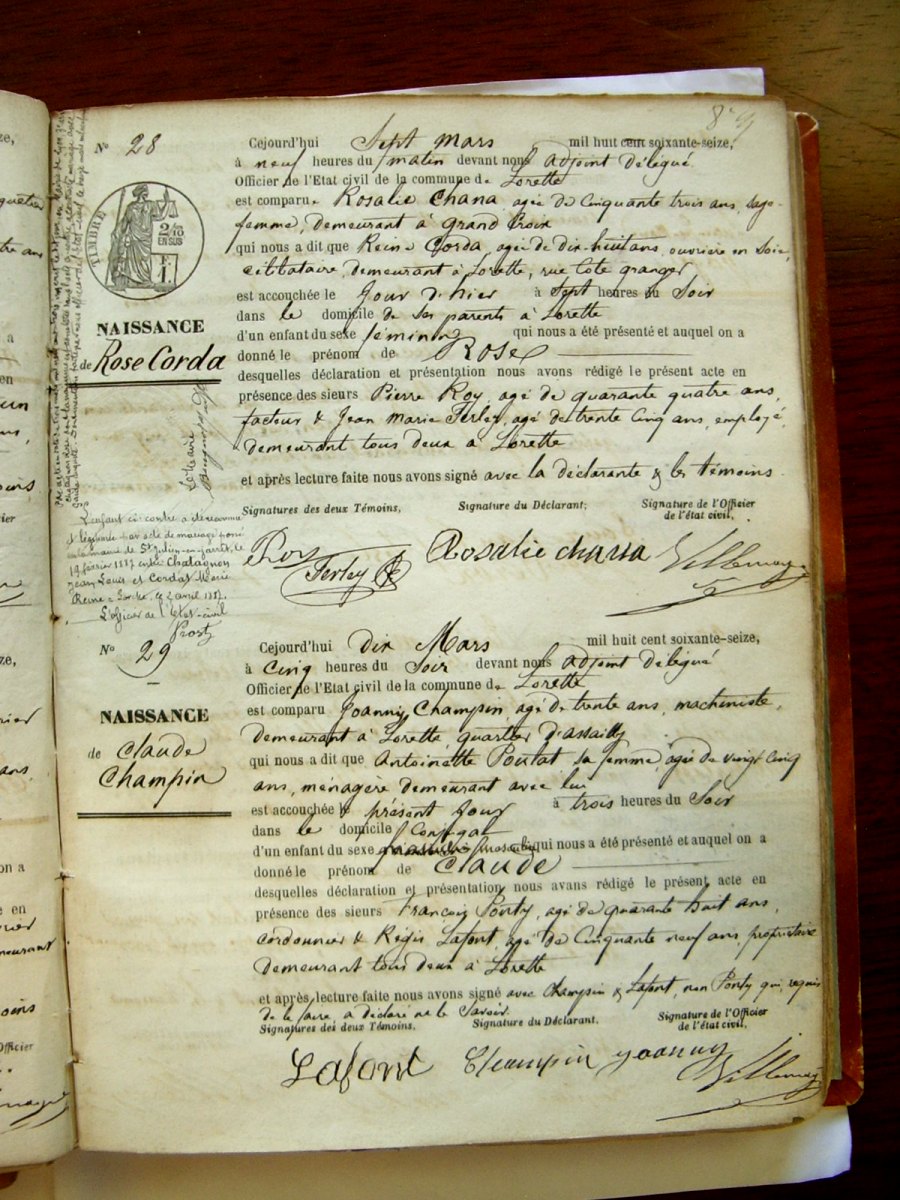 Nº 28
TIMBRE
2/10 EN SUS
NAISSANCE
de Rose Corda
Cejourd'hui Sept mars mil huit cent soixante-seize,
à neuf heures du matin devant nous adjoint délégué
Officier de l'Etat civil de la commune de Lorette
est comparue Rosalie Chana agée de Cinquante trois ans, sage-
femme, demeurant à Grand Croix
qui nous a dit que Reine Corda, agée de dix-huit ans, ouvrière en Soie,
célibataire, demeurant à Lorette, rue Côte granger
est accouchée le Jour d'hier à Sept heures du Soir
dans le domicile de ses parents à Lorette
d'un enfant du sexe féminin qui nous a été présenté et auquel on a
donné le prénom de Rose
desquelles déclaration et présentation nous avons rédigé le présent acte en
présence des sieurs Pierre Roy, agé de quarante quatre ans,
facteur & Jean Marie Ferley, agé de trente Cinq ans, employé,
demeurant tous deux à Lorette
et après lecture faite nous avons signé avec la déclarante & les témoins.
Signatures des deux Témoins, Signature du Déclarant; Signature de l'Officier
de l'état civil,
Roy Ferley Rosalie chana Villemagne
Le Maire
L'enfant ci-contre a été reconnu
et légitimé par acte de mariage
à la mairie de St Julien-en-Jarret, le
19 février 1887 entre Chatagnon
Jean Louis et Corda Marie
Reine Lorette, le 2 avril 1887.
L'officier de l'état-civil
Prost
Nº 29
NAISSANCE
de Claude
Champin
Cejourd'hui dix Mars mil huit cent soixante-seize,
à Cinq heures du Soir devant nous adjoint délégué
Officier de l'Etat civil de la commune de Lorette
est comparu Joanny Champin agé de trente ans, machiniste,
demeurant à Lorette, quartier d'assailly
qui nous a dit que Antoinette Poulat sa femme, agée de vingt Cinq
ans, ménagère demeurant avec lui
est accouchée le présent Jour à trois heures du Soir
dans le domicile Conjugal
d'un enfant du sexe masculin qui nous a été présenté et auquel on a
donné le prénom de Claude
desquelles déclaration et présentation nous avans rédigé le présent acte en
présence des sieurs François Ponty, agé de quarante huit ans,
cordonnier & Régis Lafont, agé de Cinquante neuf ans, propriétaire
demeurant tous deux à Lorette
et après lecture faite nous avons signé avec Champin & Lafont, non Ponty qui, requis
de le faire, a déclaré ne le Savoir.
Signatures des deux Témoins. Signature du Déclarant. Signature de l'Officier
de l'état civil,
Lafont Champin Joanny Villemagne